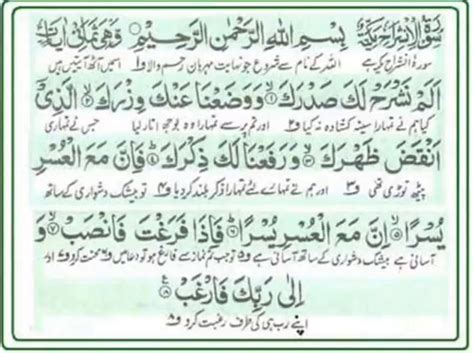 سورة الانشراح مكية بِسْمِ اللهِ الرَّحْمٰنِ الرَّحِيْمِ وَهِيَ ثَمَانِي اٰيَاتٍ
سورۂ انشراح مکی ہے اللہ کے نام سے شروع جو نہایت مہربان رحم والا ف۱ اسمیں آٹھ آیتیں ہیں
اَلَمْ نَشْرَحْ لَكَ صَدْرَكَ ۙ۱ وَوَضَعْنَا عَنْكَ وِزْرَكَ ۙ۲ الَّذِيْۤ
کیا ہم نے تمہارا سینہ کشادہ نہ کیا ف۲ اور تم پر سے تمہارا وہ بوجھ اتار لیا جس نے تمہاری
اَنْقَضَ ظَهْرَكَ ۙ۳ وَرَفَعْنَا لَكَ ذِكْرَكَ ؕ۴ فَاِنَّ مَعَ الْعُسْرِ
پیٹھ توڑی تھی ف۳ اور ہم نے تمہارے لئے تمہارا ذکر بلند کر دیا ف۴ تو بیشک دشواری کے ساتھ
يُسْرًا ۙ۵ اِنَّ مَعَ الْعُسْرِ يُسْرًا ؕ۶ فَاِذَا فَرَغْتَ فَانْصَبْ ۙ۷ وَ
آسانی ہے بیشک دشواری کے ساتھ آسانی ہے ف۵ تو جب تم نماز سے فارغ ہو تو دعا میں ف۶ محنت کرو ف۷ اور
اِلٰى رَبِّكَ فَارْغَبْ ۠۸
اپنے رب ہی کی طرف رغبت کرو ف۸